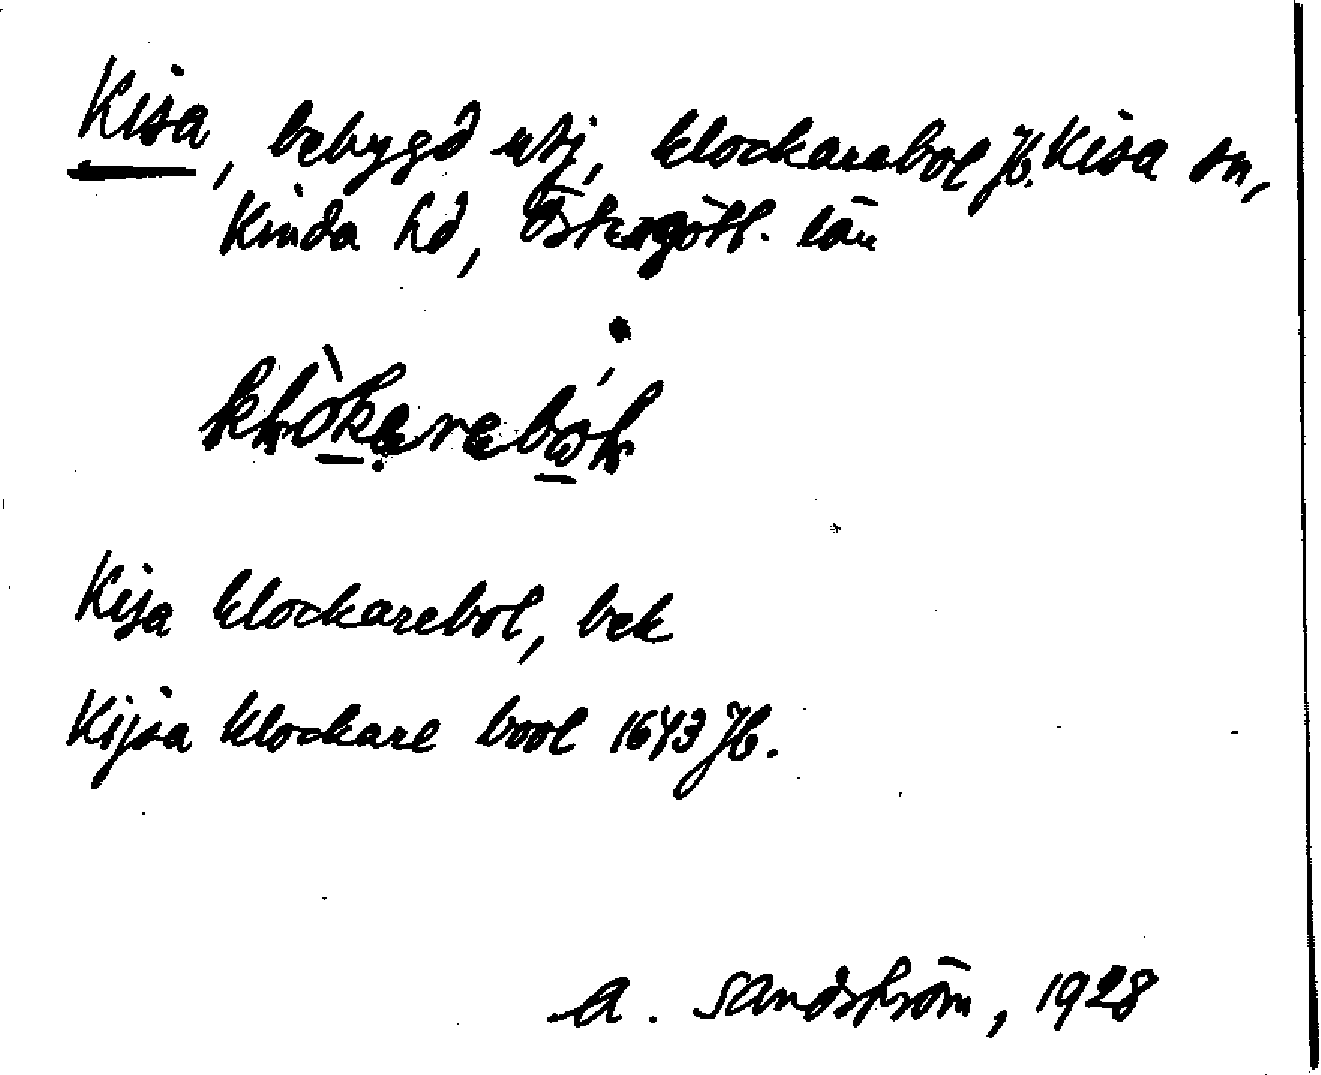 Kisa, bebygd utj, klockarebol Jb. Kisa sn,
Kinda hd, Östergötl. län
Kisa klockarebol, bek
Kijsa klockare bool 1643 Jb.
A. Sandström, 1928